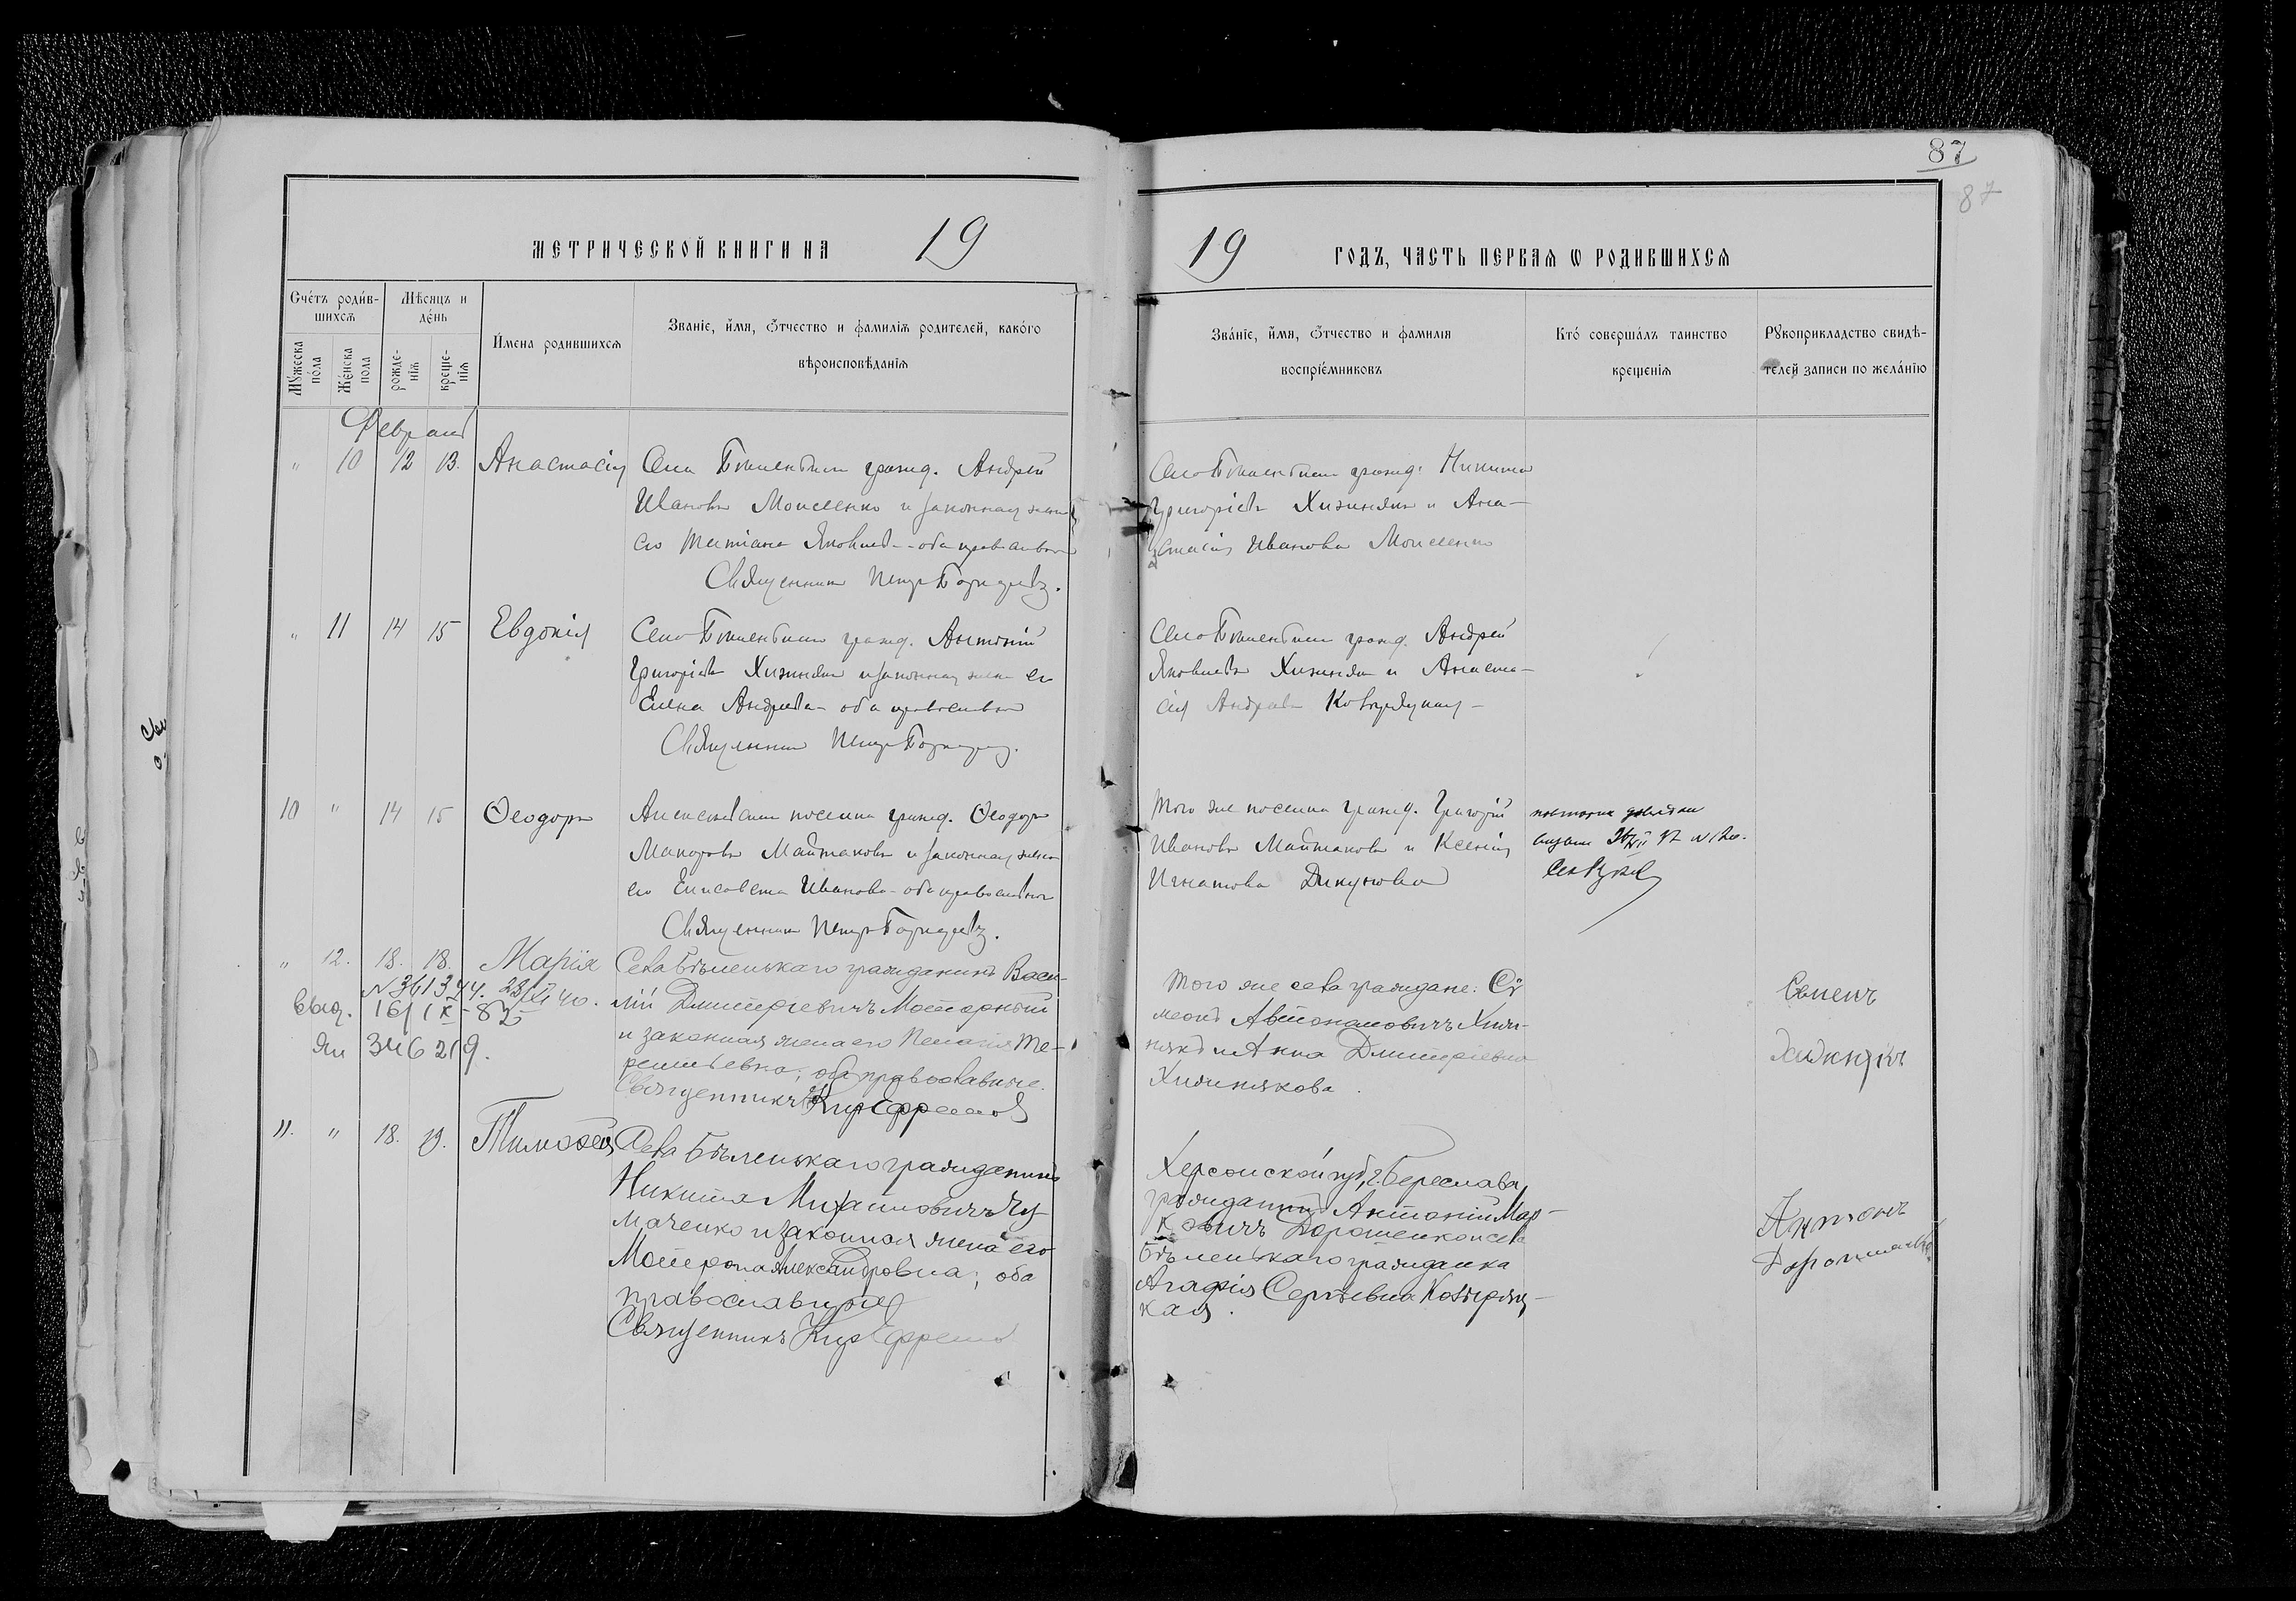 87
87
МЕТРИЧЕСКОЙ КНИГИ НА 19
19 ГОДЪ, ЧАСТЬ ПЕРВАѦ Ѡ РОДИВШИХСѦ
Сче́тъ роди́в-
шихсѧ
Мꙋ́жеска
по́ла
Же́нска
пола
Мѣ́сяцъ и
де́нь
рожде-
нїѧ
креще-
нїѧ
И҆мена родившихсѧ
Званїе, и҆́мя, ѻ҆́тчество и фамилїѧ родителей, како́го
вѣроисповѣ́данїѧ
Зва́нїе, и҆́мя, ѻ҆́тчество и фамилїя
воспрїе́мниковъ
Кто́ соверша́лъ таинство
крещенїѧ
Рꙋкоприкладство свидѣ́-
телей записи по жела́нїю
Февраль
" 10 12 13. Анастасія
гражд. Андрей
Ивановъ Моисеенко и законная жена
его Татіана Яковлева - оба православн
Священникъ Петръ
гражд. Никита
Григоріевъ Хижнякъ и Ана-
стасія Иванова Моисеенко
" 11 14 15 Евдокія
Село гражд. Антоній
Григоріевъ Хижнякъ и законная жена его
Елена Андреева - оба православн
Священникъ Петръ
Село гражд. Андрей
Яковлевъ Хижнякъ и Анаста-
сія Андреева
10 " 14 15 Ѳеодоръ
поселка гражд. Ѳеодоръ
Макаровъ Майтаковъ и законная жена
его Елисавета Иванова - оба православн
Священникъ Петръ
Того же поселка гражд. Григорій
Ивановъ Майтаковъ и Ксенія
Игнатова Дикунова
" 12. 18. 18. Марія
N 361344. 28/XI 40.
выд. 16/IX-82
346219.
Села Бѣленькаго гражданинъ Васи-
лій Дмитріевичъ Моторный
и законная жена его Пелагія Те-
рентьевна; оба православные.
Священникъ Кир Ефремовъ
Того же села граждане: Сѵ
меонъ Автономовичъ Хиж-
някъ и Анна Дмитріевна
Хижнякова.
Семенъ
Хижнякъ
11. " 18. 19. Тимоѳей
Села Бѣленькаго гражданинъ
Никита Михайловичъ Чу-
маченко и законная жена его
Матрона Александровна; оба
православные
Священникъ Кир Ефремовъ
Херсонской губ, г. Береслава,
гражданинъ Антоній Мар-
ковичъ Дорошенко и села
Бѣленькаго гражданка
Агафія Сергѣевна
кая.
Антонъ
Дорошенко